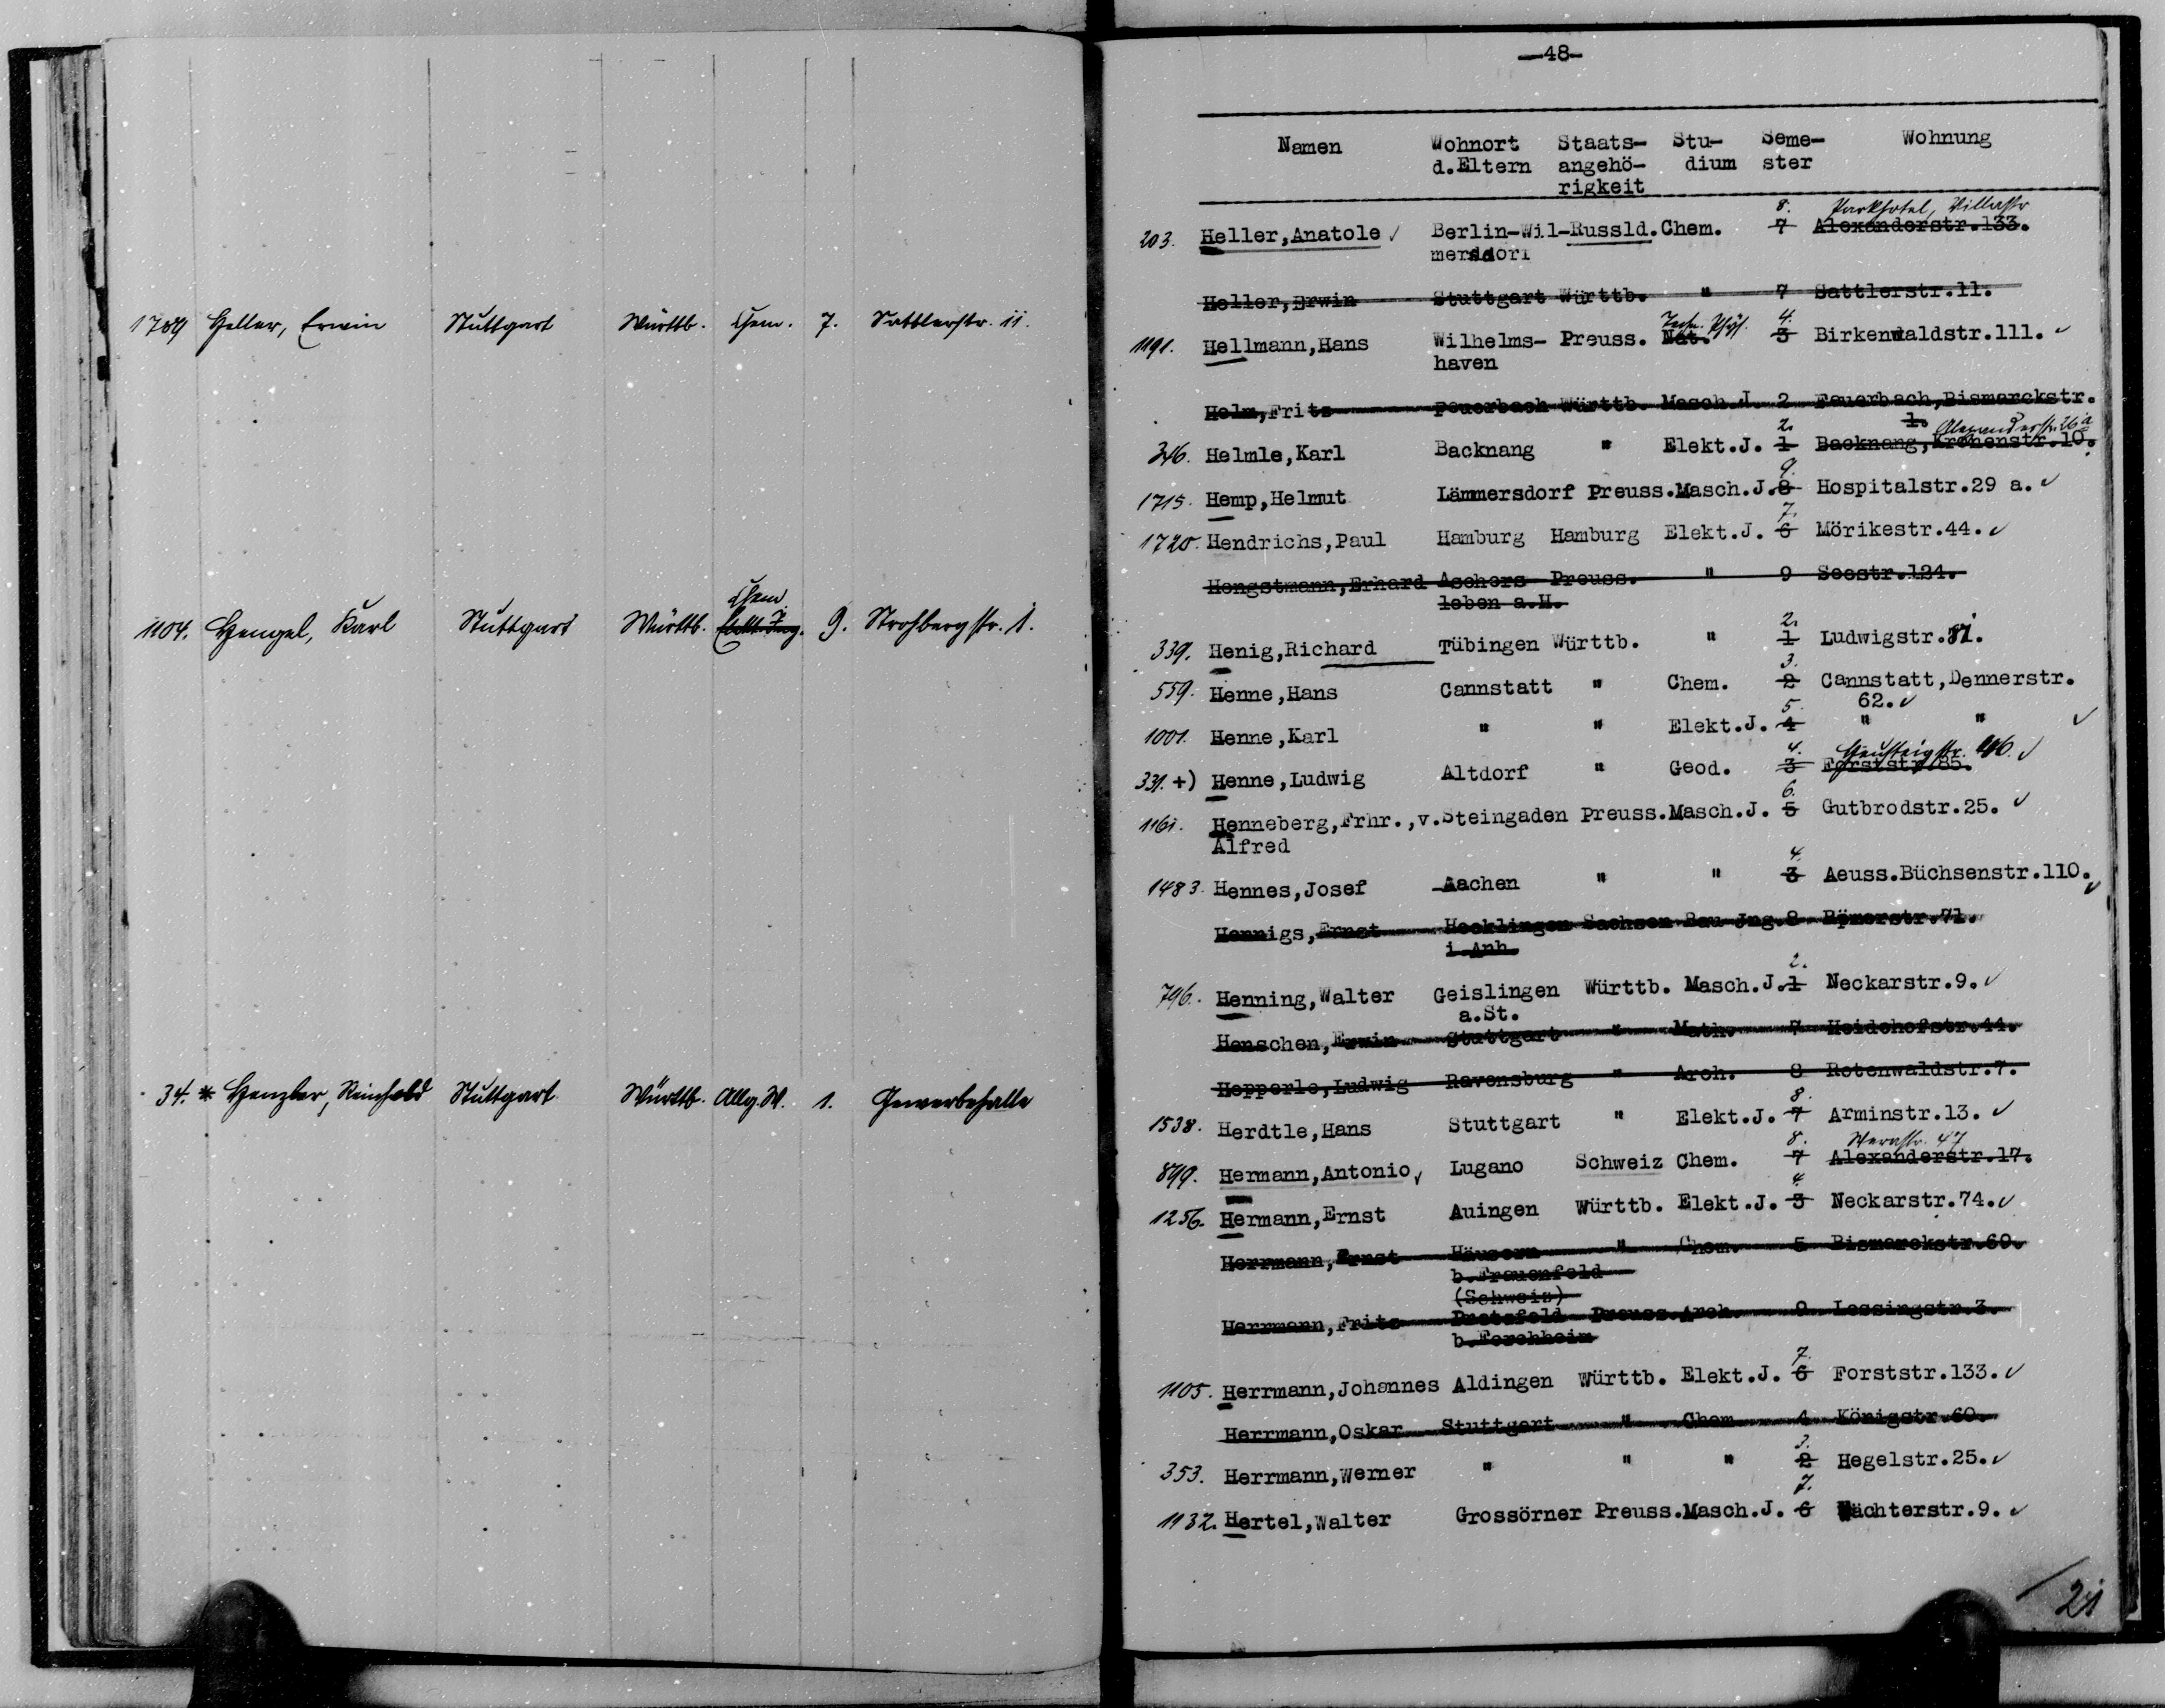 1789 Heller, Erwin Stuttgart Württb. Chem. 7. Sattlerstr. 11.
Chem.
1104. Hengel, Karl Stuttgart Württb. Elekt. Ing. 9. Strohbergstr. 1.
34. * Henzler, Reinhold Stuttgart Württb. Allg. W. 1. Gewerbehalle
—48—
Namen Wohnort Staats- Stu- Seme- Wohnung
d.Eltern angehö- dium ster
rigkeit
8. Parkhotel, Villastr
203. Heller,Anatole ✓ Berlin-Wil-Russld.Chem. 7 Alexanderstr.133.
mersdorf
Heller,Erwin Stuttgart Württb. " 7 Sattlerstr.11.
Techn. Phys. 4.
1191. Hellmann,Hans Wilhelms- Preuss. Nat. 3 Birkenwaldstr.111. ✓
haven
Helm,Fritz Feuerbach Württb. Masch.J. 2 Feuerbach,Bismarckstr.
1.
2. Alexanderstr. 26 a
346. Helmle,Karl Backnang " Elekt.J. 1 Backnang,Kronenstr.10.
9.
1715. Hemp,Helmut Lämmersdorf Preuss.Masch.J.8 Hospitalstr.29 a. ✓
7.
1720. Hendrichs,Paul Hamburg Hamburg Elekt.J. 6 Mörikestr.44. ✓
Hengstmann,Erhard Aschers Preuss. " 9 Seestr.124.
leben a.H.
2.
339. Henig,Richard Tübingen Württb. " 1 Ludwigstr.81.
3.
559. Henne,Hans Cannstatt " Chem. 2 Cannstatt,Dennerstr.
62. ✓
5.
1001. Henne,Karl " " Elekt.J. 4 " " ✓
4. Heusteigstr. 46. ✓
331. +) Henne,Ludwig Altdorf " Geod. 3 Forststr.85.
6.
1161. Henneberg,Frhr.,v.Steingaden Preuss.Masch.J. 5 Gutbrodstr.25. ✓
Alfred
4.
1483. Hennes,Josef Aachen " " 3 Aeuss.Büchsenstr.110. ✓
Hennigs,Ernst Hecklingen Sachsen Bau Jng.8 Römerstr.71.
i.Anh.
2.
796. Henning,Walter Geislingen Württb. Masch.J.1 Neckarstr.9. ✓
a.St.
Henschen,Erwin Stuttgart " Math. 7 Heidehofstr.44.
Hepperle,Ludwig Ravensburg " Arch. 8 Rotenwaldstr.7.
8.
1538. Herdtle,Hans Stuttgart " Elekt.J. 7 Arminstr.13. ✓
8. Werastr. 47
899. Hermann,Antonio ✓ Lugano Schweiz Chem. 7 Alexanderstr.17.
4.
1256. Hermann,Ernst Auingen Württb. Elekt.J. 3 Neckarstr.74. ✓
Herrmann,Ernst Häusern " Chem. 5 Bismarckstr.60.
b.Frauenfeld
(Schweiz)
Herrmann,Fritz Pretzfeld Preuss.Arch. 9 Lessingstr.3.
b.Forchheim
7.
1105. Herrmann,Johannes Aldingen Württb. Elekt.J. 6 Forststr.133. ✓
Herrmann,Oskar Stuttgart " Chem 4 Königstr.60.
3.
353. Herrmann,Werner " " " 2 Hegelstr.25. ✓
7.
1132. Hertel,Walter Grossörner Preuss.Masch.J. 6 Wächterstr.9. ✓
21